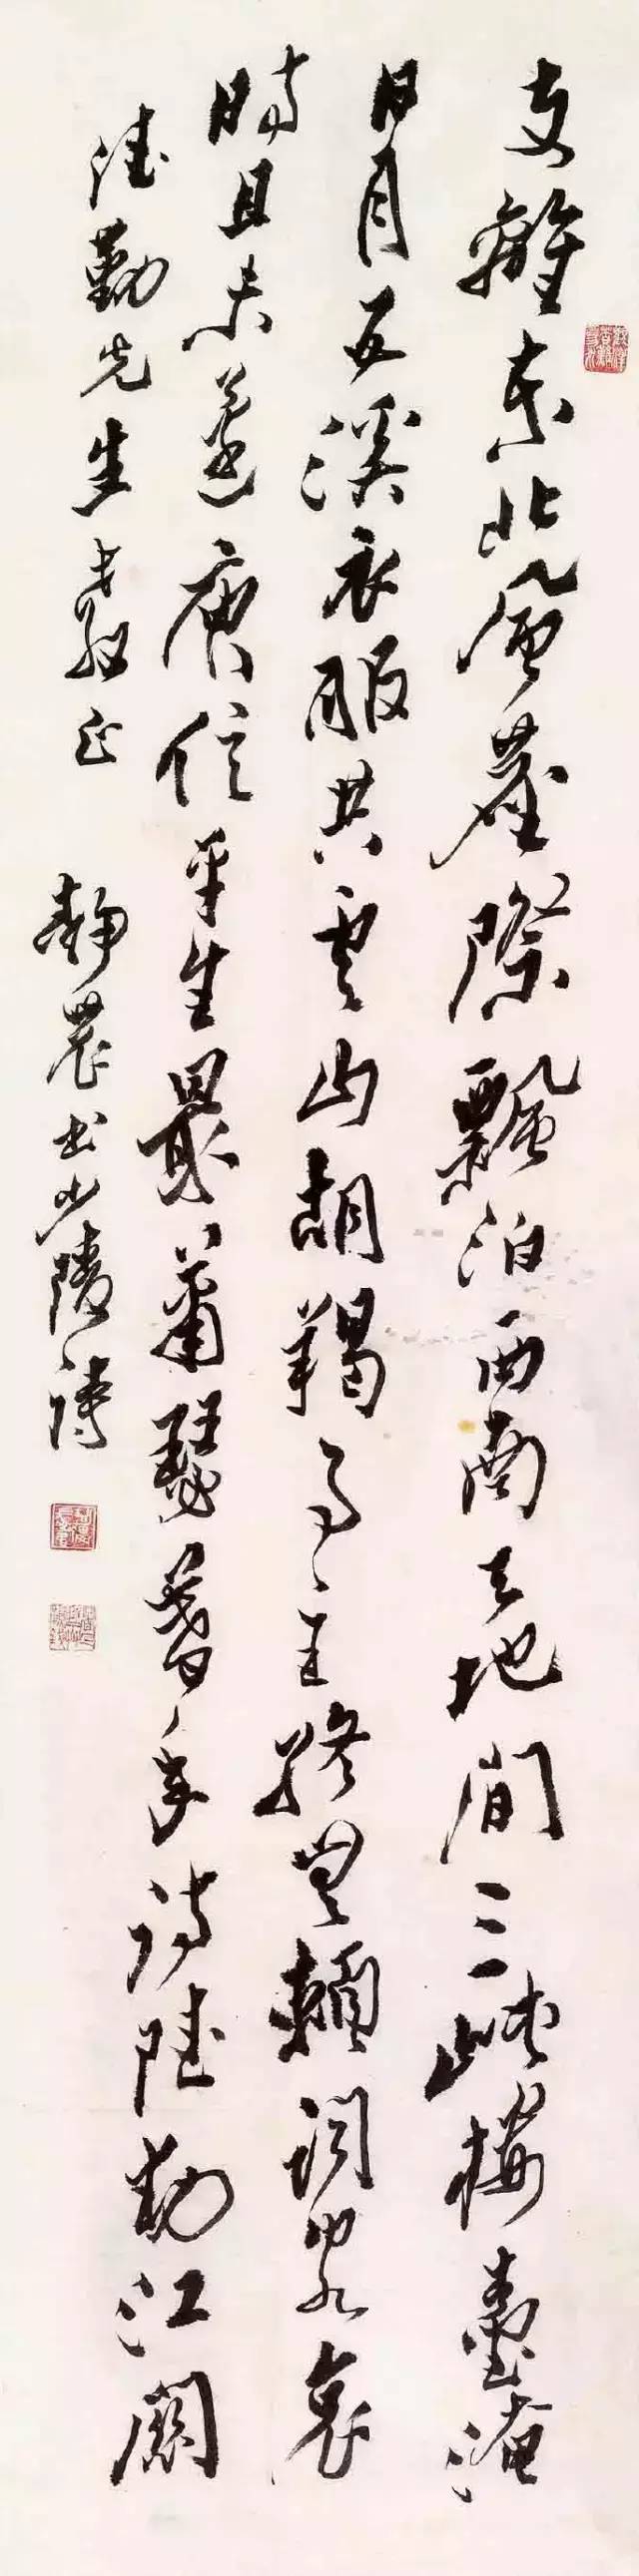 支離東北風塵際飄泊西南天地間三峽樓臺淹
日月五溪衣服共雲山胡羯事主終無賴詞客哀
時且未還庾信平生最蕭瑟暮年詩賦動江關
勤先生教正
靜農書少陵詩